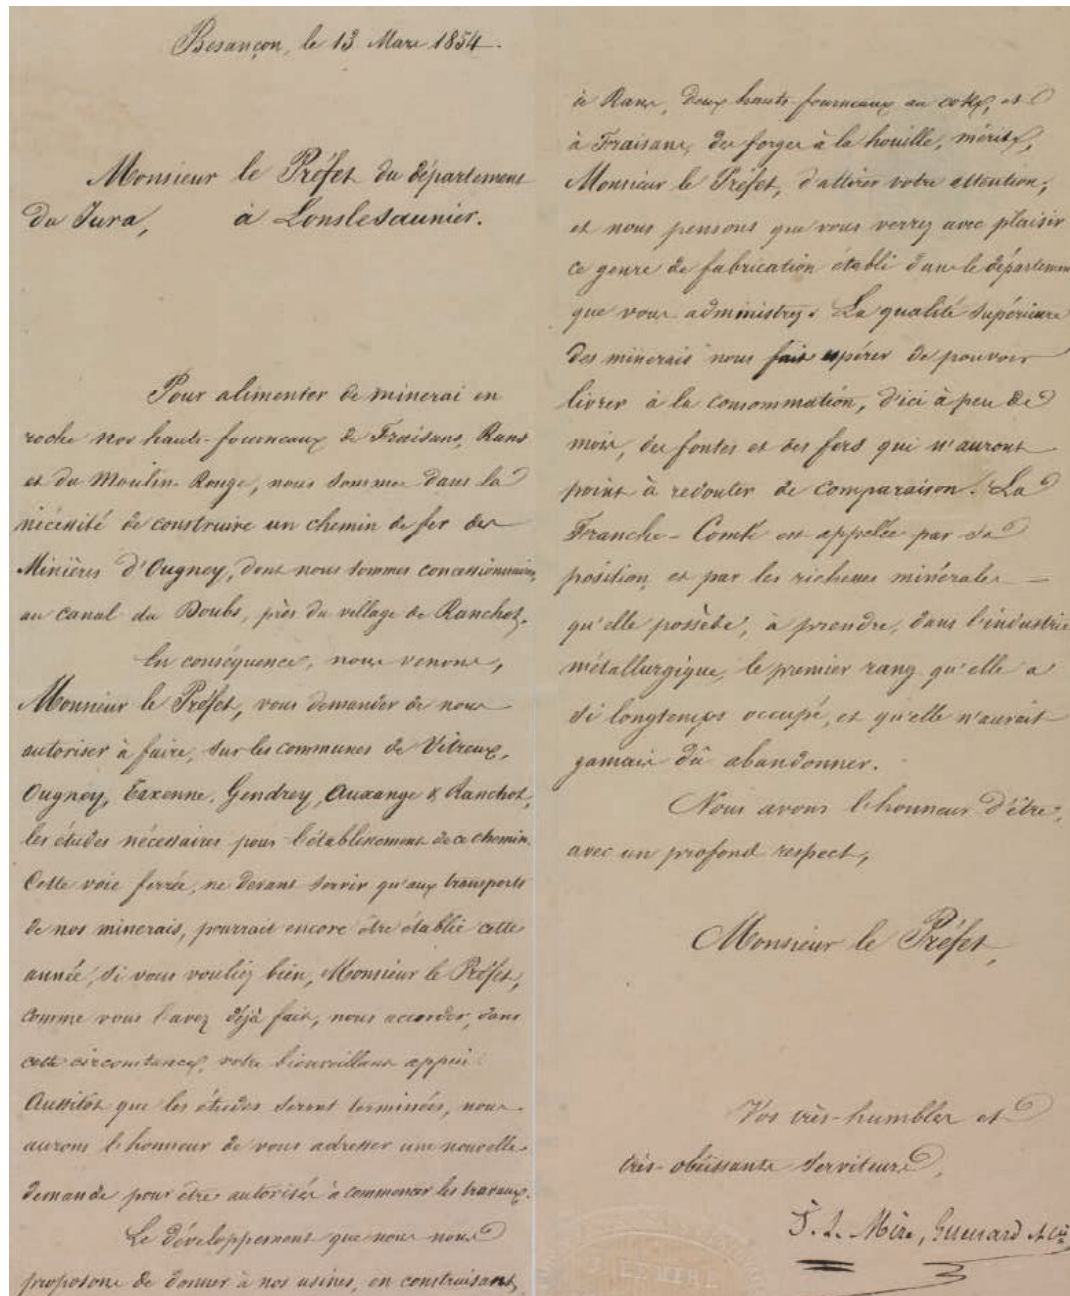 Besançon, le 13 Mars 1854.
Monsieur le Préfet du département
du Jura, à Lonslesaunier.
Pour alimenter de minerai en
roche nos hauts-fourneaux de Fraisans, Rans
et du Moulin-Rouge, nous sommes dans la
nécéssité de construire un chemin de fer des
Minières d'Ougney, dont nous sommes concessionnaires,
au canal du Doubs, près du village de Ranchot.
En conséquence, nous venons,
Monsieur le Préfet, vous demander de nous
autoriser à faire, sur les communes de Vitreux,
Ougney, Taxenne, Gendrey, Auxange & Ranchot,
les études nécessaires pour l'établissement de ce chemin.
Cette voie ferrée, ne devant servir qu'aux transports
de nos minerais, pourrait encore être établie cette
année, si vous vouliez bien, Monsieur le Préfet,
comme vous l'avez déjà fait, nous accorder, dans
cette circonstance, votre bienveillant appui.
Aussitôt que les études seront terminées, nous
aurons l'honneur de vous adresser une nouvelle
demande pour être autorisés à commencer les travaux.
Le développement que nous nous
proposons de donner à nos usines, en construisant,
à Rans, deux hauts-fourneaux au coke, et
à Fraisans, des forges à la houille, mérite,
Monsieur le Préfet, d'attirer votre attention,
et nous pensons que vous verrez avec plaisir
ce genre de fabrication établi dans le département
que vous administrez. La qualité supérieure
des minerais nous fait espérer de pouvoir
livrer à la consommation, d'ici à peu de
mois, des fontes et des fers qui n'auront
point à redouter de comparaison. La
Franche-Comté est appelée par sa
position, et par les richesses minérales
qu'elle possède, à prendre, dans l'industrie
métallurgique, le premier rang qu'elle a
si longtemps occupé, et qu'elle n'aurait
jamais dû abandonner.
Nous avons l'honneur d'être,
avec un profond respect,
Monsieur le Préfet,
Vos très-humbles et
très-obéissants serviteurs,
Mire, Guenard &